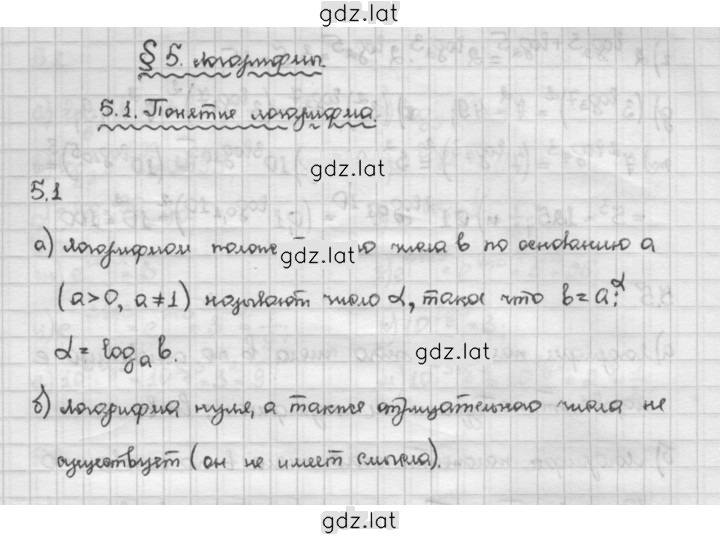 gdz.lat
§ 5. Логарифмы.
5.1. Понятие логарифма.
gdz.lat
5.1
а) Логарифмом числа b по основанию a
gdz.lat
(a>0, a≠1) называют число α, такое что b=a^α:
α = log_a b.
gdz.lat
б) Логарифма нуля, а также отрицательного числа не
существует (он не имеет смысла).
gdz.lat